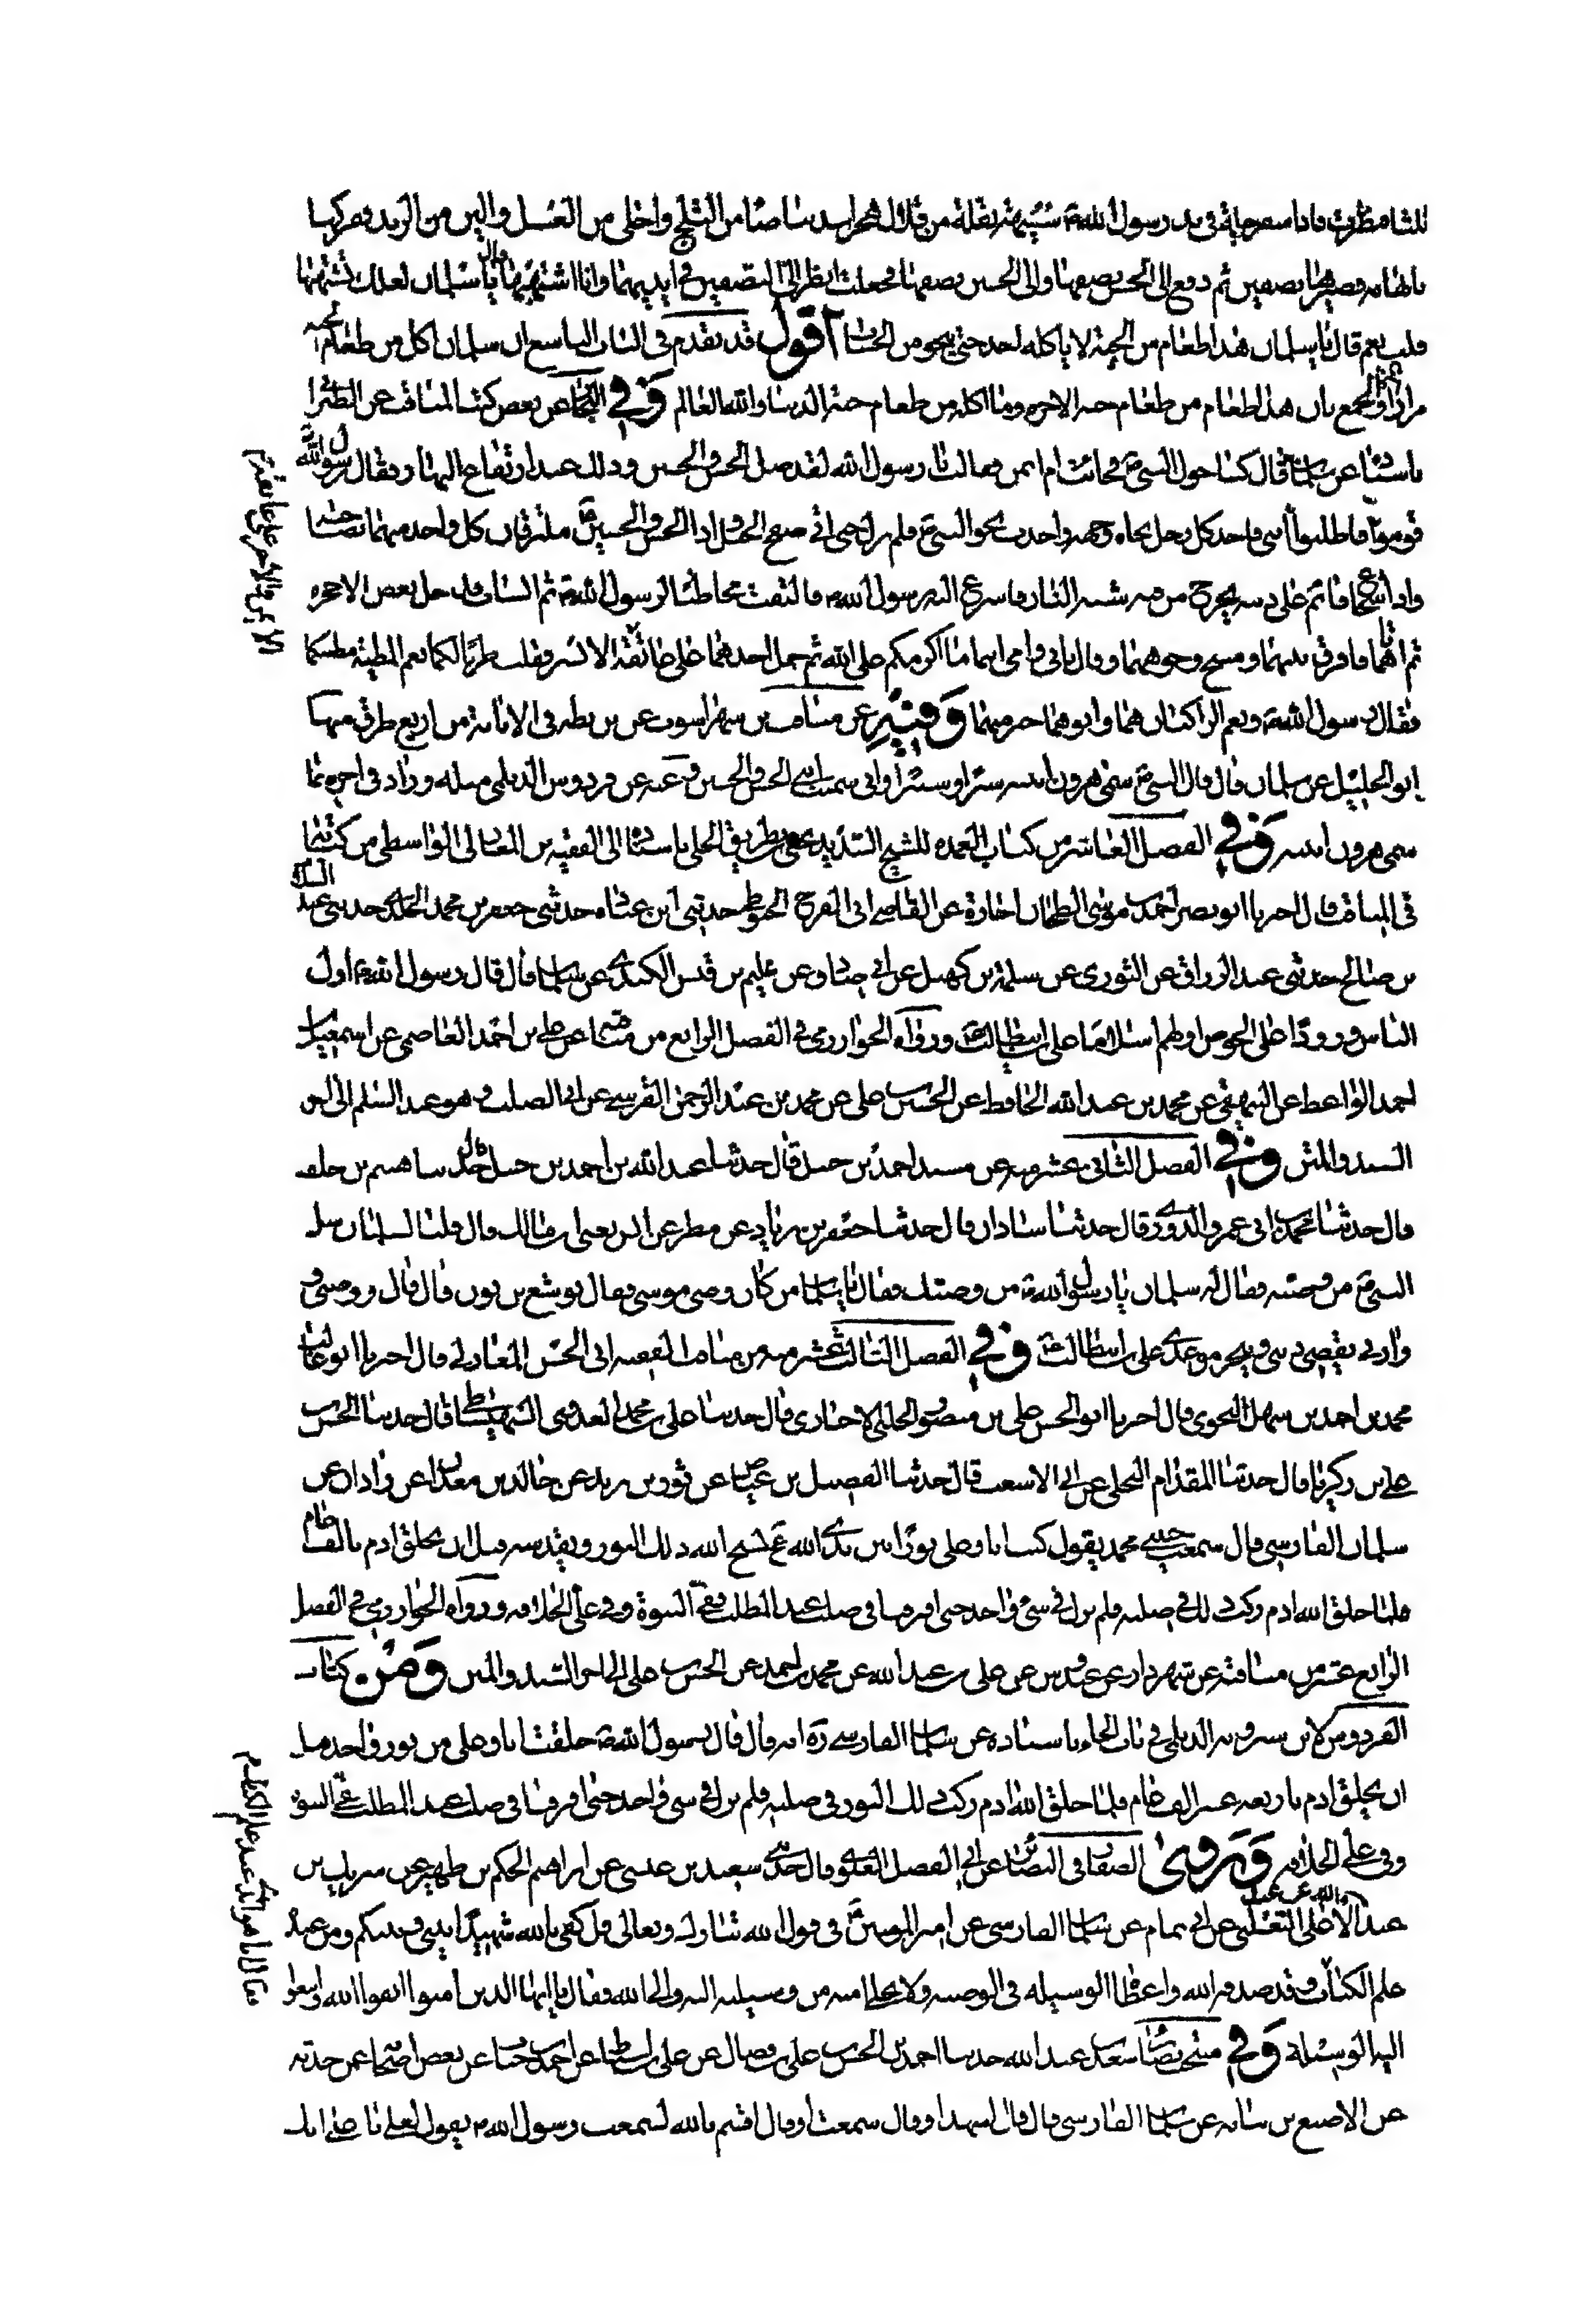 فاذا سفرجلة فى يد رسول الله شبيهة من قلال هجر اشد بياضا من الثلج واحلى من العسل والين من الزبد
بابهامه فصيرها نصفين ثم دفع الى الحسن نصفها والى الحسين نصفها فجعلت انظر الى النصفين فى ايديهما وانا اشتهيها قال يا سلمان لعلك تشتهيها
قلت نعم قال يا سلمان هذا طعام من الجنة لا ياكله احد حتى ينجو من الحساب اقول قد تقدم فى الباب التاسع ان سلمان اكل من طعام الجنة
مرارا والجمع بان هذا طعام من طعام جنة الاخرة وما اكله من طعام جنة الدنيا والله العالم وفي البحار عن بعض كتب المناقب عن الطبرانى
باسناده عن سلمان قال كنا حول النبى فجائت ام ايمن فقالت يا رسول الله لقد ضل الحسن والحسين وذلك عند ارتفاع النهار فقال رسول الله
قوموا فاطلبوا ابنى فاخذ كل رجل تجاه وجهه واخذت نحو النبى فلم يزل حتى اتى صفح الجبل واذا الحسن والحسين ملتزقان كل واحد منهما بصاحبه
واذا شجاع قائم على ذنبه يخرج من فيه شبه النار فاسرع اليه رسول الله فالتفت مخاطبا لرسول الله ثم انساب فدخل بعض الاحجرة
ثم اتاهما فافرق بينهما ومسح وجوههما وقال بابى وامى انتما ما اكرمكم على الله ثم حمل احدهما على عاتقه الايسر فقلت طوبا لكما نعم المطية مطيتكما
فقال رسول الله ونعم الراكبان هما وابوهما خير منهما وفيه عن مناقب بن شهراشوب عن بن بطه فى الابانة من اربع طرق منها
ابو الخليل عن سلمان قال قال النبى سمى هرون ابنيه شبرا وشبيرا وانى سميت ابنى الحسن والحسين وعنه عن فردوس الديلمى مثله وزاد فى اخره بما
سمى هرون ابنيه وفي الفصل العاشر من كتاب العمدة للشيخ السديد يحيى بن بطريق الحلى باسناده الى الفقيه بن المغازلى الواسطى من كتابه
فى المناقب قال اخبرنا ابو نصر احمد بن موسى الطحان اجازة عن القاضى ابى الفرج الحنوطى حدثنى ابن عباد حدثنى جعفر بن محمد حدثنى عبد السلام
بن صالح حدثنى عبد الرزاق عن الثورى عن سلمة بن كهيل عن ابى صادق عن عليم بن قيس الكندى عن سلمان قال قال رسول الله اول
الناس ورودا على الحوض اولهم اسلاما على بن ابيطالب ورواه الخوارزمى فى الفصل الرابع من مناقبه عن على بن احمد العاصمى عن اسمعيل بن
احمد الواعظ عن البيهقى عن محمد بن عبد الله الحافظ عن الحسن بن على عن محمد بن عبد الرحمن القرشى عن ابى الصلت وهو عبد السلم الى اخر
السند والمتن وفي الفصل الثانى عشر منه عن مسند احمد بن حنبل قال حدثنا عبد الله بن احمد بن حنبل قال حدثنا هيثم بن خلف
قال حدثنا محمد بن ابى عمر والدورى قال حدثنا شاذان قال حدثنا جعفر بن زياد عن مطر عن انس يعنى ابن مالك قال قلنا لسلمان سل
النبى من وصيه فقال له سلمان يا رسول الله من وصيك فقال يا سلمان من كان وصى موسى فقال يوشع بن نون قال قال ووصيى و
وارثى يقضى دينى وينجز موعدى على بن ابيطالب وفي الفصل الثالث عشر منه من مناقب الفقيه ابى الحسن المغازلى قال اخبرنا ابو غالب
محمد بن احمد بن سهل النحوى قال اخبرنا ابو الحسن على بن منصور الحلبى الاخبارى قال حدثنا على بن محمد العدوى الشمشاطى قال حدثنا الحسن بن
على بن زكريا قال حدثنا المقدام العجلى عن ابى الاشعث قال حدثنا الفضيل بن عياض عن ثور بن يزيد عن خالد بن معدان عن زاذان عن
سلمان الفارسى قال سمعت حبيبى محمد يقول كنت انا وعلى نورا بين يدى الله يسبح الله ذلك النور ويقدسه قبل ان يخلق ادم بالف عام
فلما خلق الله ادم ركب ذلك فى صلبه فلم يزل فى شىء واحد حتى افترقنا فى صلب عبد المطلب ففى النبوة وفى على الخلافة ورواه الخوارزمى فى الفصل
الرابع عشر من مناقبه عن شهردار عن عبدوس عن على بن عبد الله عن محمد بن احمد عن الحسن بن على الى اخر السند والمتن ومن كتاب
الفردوس لابن شيرويه الديلمى فى باب الخاء باسناده عن سلمان الفارسى ره انه قال قال رسول الله خلقت انا وعلى من نور واحد قبل
ان يخلق ادم باربعة عشر الف عام فلما خلق الله ادم ركب ذلك النور فى صلبه فلم يزل فى شىء واحد حتى افترقنا فى صلب عبد المطلب ففى النبوة
وفى على الخلافة وروى الصفار فى البصائر عن ابى الفضل العلوى قال حدثنى سعيد بن عيسى عن ابراهيم الحكم بن ظهير عن شريك بن
عبد الله عن عبد الاعلى التغلبى عن ابى تمام عن سلمان الفارسى عن امير المومنين فى قول الله تبارك وتعالى قل كفى بالله شهيدا بينى وبينكم ومن عنده
علم الكتاب وقد صدقه الله واعطاه الوسيلة فى الوصية ولا يخلى امته من وسيلته اليه والى الله فقال يا ايها الذين امنوا اتقوا الله وابتغوا
اليه الوسيلة وفي منتخب بصائر سعد بن عبد الله حدثنا احمد بن الحسن بن على بن فضال عن على بن اسباط عن احمد بن حنان عن بعض اصحابه عمن حدثه
عن الاصبغ بن نباته عن سلمان الفارسى قال قال اشهد او قال سمعت او قال اقسم بالله لسمعت رسول الله يقول لعلى يا على انك